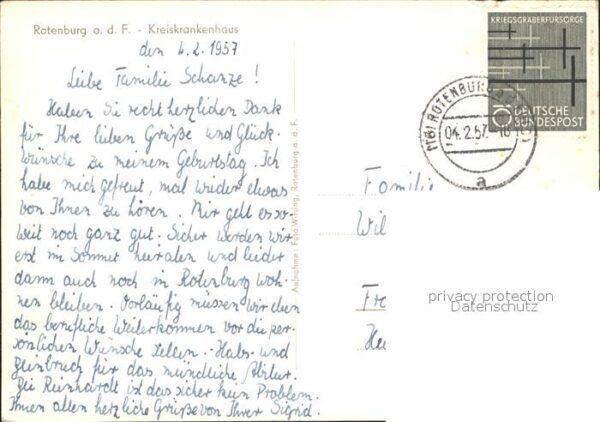 Rotenburg a. d. F. - Kreiskrankenhaus
den 4.2.1957
Liebe Familie Schanze!
Haben Sie recht herzlichen Dank
für Ihre lieben Grüße und Glück-
wünsche zu meinem Geburtstag. Ich
habe mich gefreut, mal wieder etwas
von Ihnen zu hören. Mir geht es so-
weit noch ganz gut. Sicher werden wir
erst im Sommer heiraten und leider
dann auch noch in Rotenburg woh-
nen bleiben. Vorläufig müssen wir eben
das berufliche Weiterkommen vor die per-
sönlichen Wünsche stellen. Hals- und
Beinbruch für das mündliche Abitur.
Bei Reinhardt ist das sicher kein Problem.
Ihnen allen herzliche Grüße von Ihrer Sigrid.
Aufnahme: Foto Rotenburg a. d. F.
KRIEGSGRÄBERFÜRSORGE
10
DEUTSCHE
BUNDESPOST
(16) ROTENBURG
04.2.57
a
Familie
Wil
Fr
privacy protection
Datenschutz